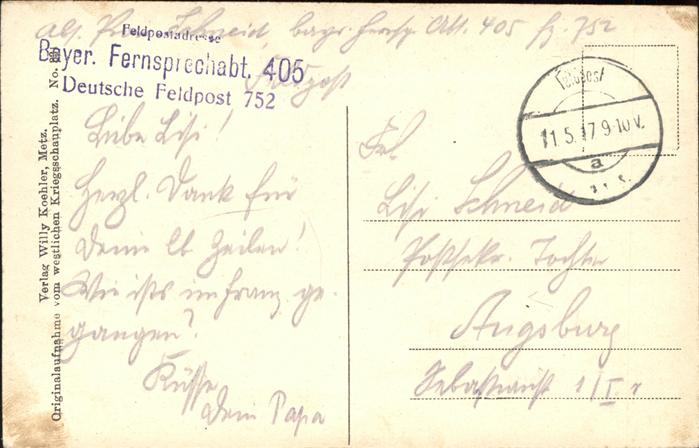 Abs. Schneid, bayr. Fernspr. Abt. 405 fp. 752
Feldpostadresse
Bayer. Fernsprechabt. 405
Deutsche Feldpost 752
Feldpost
Feldpost
11.5.17 9-10 V.
a
Liebe Lisi!
Herzl. Dank für
Deine lb Zeilen!
Wie ists im franz ge-
gangen?
Küsse
Dein Papa
Frl.
Lisi Schneid
Postsekr. Tochter
Augsburg
Sebastianst 1/I r
Verlag Willy Koehler, Metz.
Originalaufnahme vom westlichen Kriegsschauplatz. No.